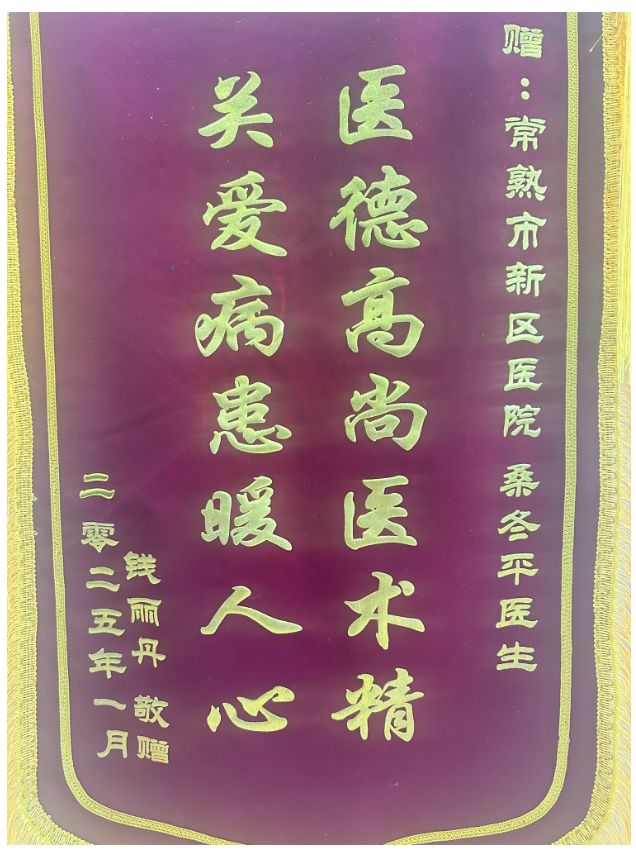 赠：常熟市新区医院 桑冬平医生
医德高尚医术精
关爱病患暖人心
钱丽丹 敬赠
二零二五年一月